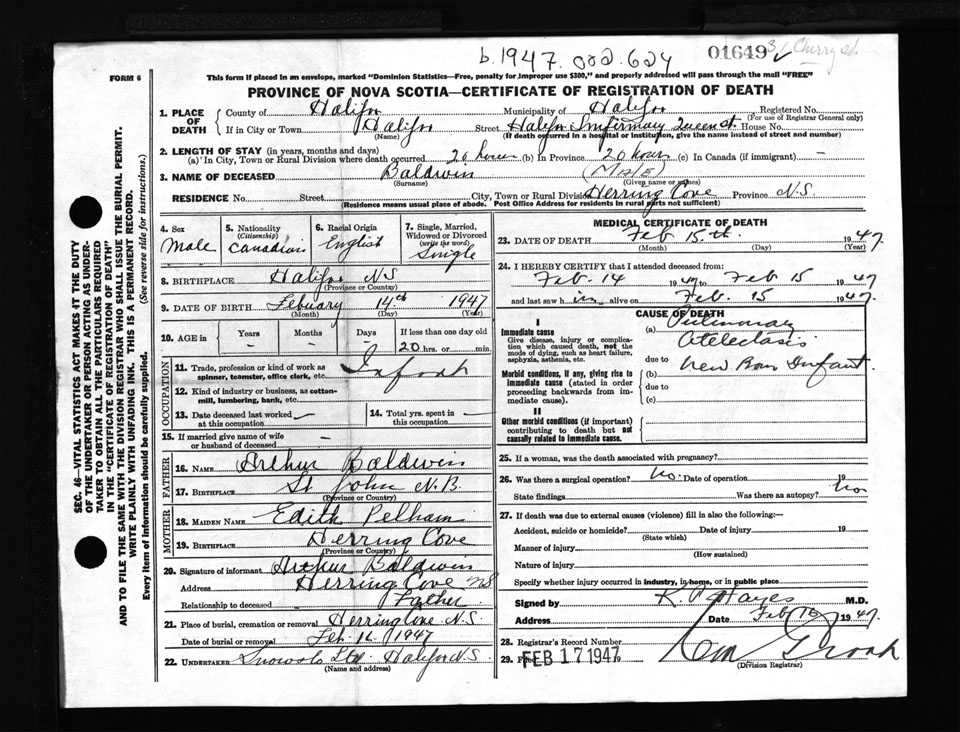 b. 1947. 002.624 01649 31 Cherry st.
FORM 6
This form if placed in an envelope, marked "Dominion Statistics—Free, penalty for improper use $300," and properly addressed will pass through the mail "FREE"
PROVINCE OF NOVA SCOTIA—CERTIFICATE OF REGISTRATION OF DEATH
1. PLACE OF DEATH
County of Halifax Municipality of Halifax Registered No.
(For use of Registrar General only)
If in City or Town Halifax Street Halifax Infirmary Queen st. House No.
(Name) (If death occurred in a hospital or institution, give the name instead of street and number)
2. LENGTH OF STAY (in years, months and days)
(a) In City, Town or Rural Division where death occurred 20 hours (b) In Province 20 hours (c) In Canada (if immigrant) —
3. NAME OF DECEASED Baldwin (Male)
(Surname) (Given name or names)
RESIDENCE No. Street City, Town or Rural Division Herring Cove Province N.S.
(Residence means usual place of abode. Post Office Address for residents in rural parts not sufficient)
4. Sex
Male
5. Nationality
(Citizenship)
Canadian
6. Racial Origin
English
7. Single, Married, Widowed or Divorced
(write the word)
Single
8. BIRTHPLACE Halifax N.S
(Province or Country)
9. DATE OF BIRTH Febuary 14th 1947
(Month) (Day) (Year)
10. AGE in Years Months Days If less than one day old
— — — 20 hrs. or min.
OCCUPATION
11. Trade, profession or kind of work as spinner, teamster, office clerk, etc. Infant
12. Kind of industry or business, as cotton-mill, lumbering, bank, etc.
13. Date deceased last worked at this occupation —
14. Total yrs. spent in this occupation —
15. If married give name of wife or husband of deceased —
FATHER
16. NAME Arthur Baldwin
17. BIRTHPLACE St John N.B.
(Province or Country)
MOTHER
18. MAIDEN NAME Edith Pelham
19. BIRTHPLACE Herring Cove
(Province or Country)
20. Signature of informant Arthur Baldwin
Address Herring Cove NS
Relationship to deceased Father
21. Place of burial, cremation or removal Herring Cove N.S.
Date of burial or removal Feb. 16 1947
22. UNDERTAKER Snows Ltd. Halifax N.S.
(Name and address)
MEDICAL CERTIFICATE OF DEATH
23. DATE OF DEATH Feb 15.th. 1947.
(Month) (Day) (Year)
24. I HEREBY CERTIFY that I attended deceased from:
Feb. 14 1947 to Feb 15 1947
and last saw him alive on Feb. 15 1947.
CAUSE OF DEATH
I
Immediate cause
Give disease, injury or complication which caused death, not the mode of dying, such as heart failure, asphyxia, asthenia, etc.
(a) Pulmonary
Atelectasis
due to
Morbid conditions, if any, giving rise to immediate cause (stated in order proceeding backwards from immediate cause).
(b) New Born Infant.
due to
(c)
II
Other morbid conditions (if important) contributing to death but not causally related to immediate cause.
25. If a woman, was the death associated with pregnancy?
26. Was there a surgical operation? No. Date of operation 19
State findings Was there an autopsy? No
27. If death was due to external causes (violence) fill in also the following:—
Accident, suicide or homicide? Date of injury 19
(State which)
Manner of injury
(How sustained)
Nature of injury
Specify whether injury occurred in industry, in home, or in public place
Signed by K. P. Hayes M.D.
Address Date Feb 1947.
28. Registrar's Record Number
29. FEB 17 1947
(Division Registrar)
SEC. 46—VITAL STATISTICS ACT MAKES IT THE DUTY
OF THE UNDERTAKER OR PERSON ACTING AS UNDER-
TAKER TO OBTAIN ALL THE PARTICULARS REQUIRED
IN THE "CERTIFICATE OF REGISTRATION OF DEATH"
AND TO FILE THE SAME WITH THE DIVISION REGISTRAR WHO SHALL ISSUE THE BURIAL PERMIT.
WRITE PLAINLY WITH UNFADING INK. THIS IS A PERMANENT RECORD.
Every item of information should be carefully supplied. (See reverse side for instructions.)